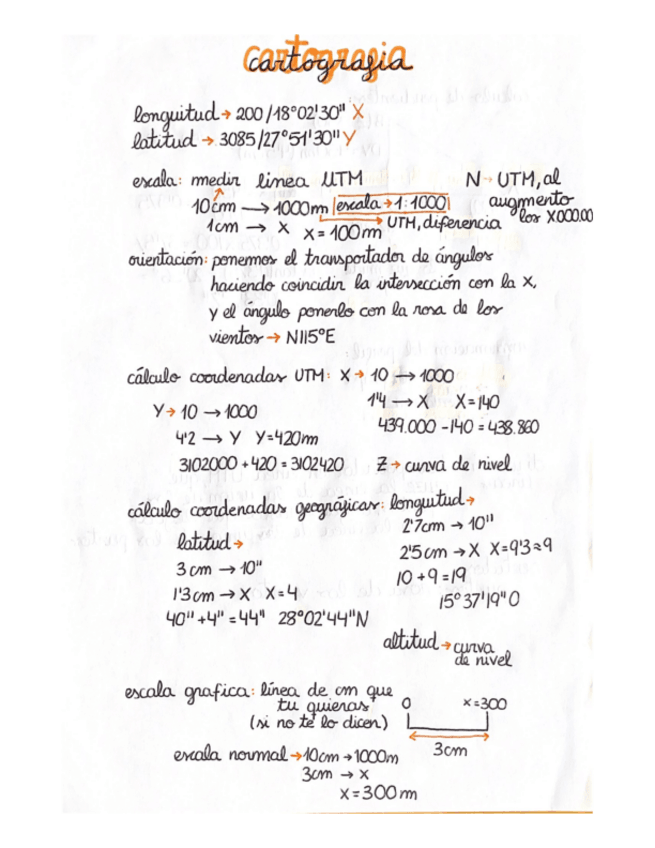 cartografia
longuitud → 200/18°02'30" X
latitud → 3085/27°51'30" Y
escala: medir linea UTM
10cm → 1000m escala → 1:1000
1cm → X X = 100m
N → UTM, al
augmento
los X000.00
UTM, diferencia
orientación: ponemos el transportador de ángulos
haciendo coincidir la intersección con la X,
y el ángulo ponerlo con la rosa de los
vientos → N115°E
cálculo coordenadas UTM: X → 10 → 1000
1'4 → X X=140
439.000 - 140 = 438.860
Y → 10 → 1000
4'2 → Y Y=420m
3102000 + 420 = 3102420
Z → curva de nivel
cálculo coordenadas geográjicas: longuitud →
2'7cm → 10"
2'5 cm → X X=9'3≈9
10 + 9 = 19
15° 37'19" O
latitud →
3 cm → 10"
1'3 cm → X X=4
40" + 4" = 44" 28°02'44" N
altitud → curva
de nivel
escala grafica: línea de cm que
tu quieras
(si no te lo dicen)
0 x=300
3cm
escala normal → 10cm → 1000m
3cm → x
x = 300 m